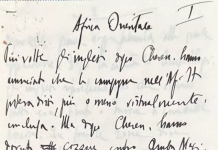 I
Africa Orientale
Più volte gli inglesi dopo Cheren, hanno
annunciato che la campagna nell'Af. It
poteva dirsi più o meno virtualmente
conclusa. Ma dopo Cheren, hanno
dovuto cozzare contro Amba